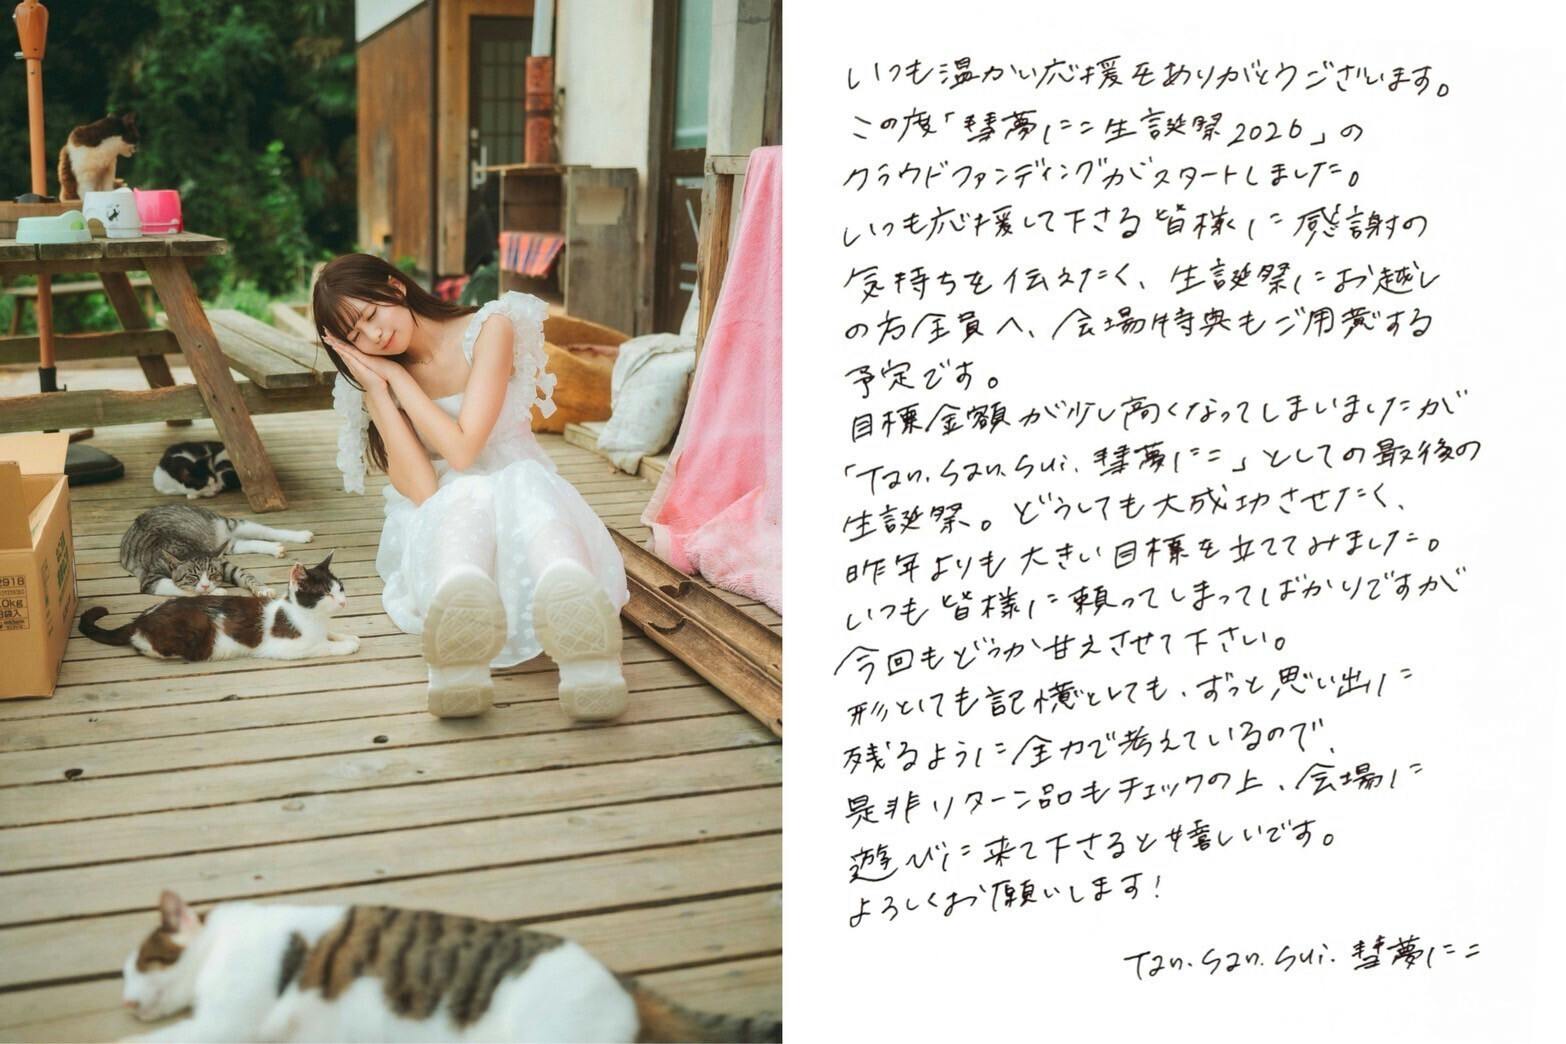 いつも温かい応援をありがとうございます。
この度「彗夢にこ生誕祭2026」の
クラウドファンディングがスタートしました。
いつも応援して下さる皆様に感謝の
気持ちを伝えたく、生誕祭にお越し
の方全員へ、会場特典もご用意する
予定です。
目標金額が少し高くなってしまいましたが
「Tan.San.Sui.彗夢にこ」としての最後の
生誕祭。どうしても大成功させたく、
昨年よりも大きい目標を立ててみました。
いつも皆様に頼ってしまってばかりですが
今回もどうか甘えさせて下さい。
形としても記憶としても、ずっと思い出に
残るように全力で考えているので、
是非リターン品もチェックの上、会場に
遊びに来て下さると嬉しいです。
よろしくお願いします!
Tan.San.Sui.彗夢にこ
2918